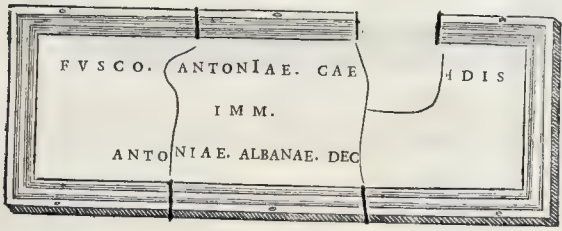 FVSCO. ANTONIAE. CAE DIS
IMM.
ANTONIAE. ALBANAE. DEC